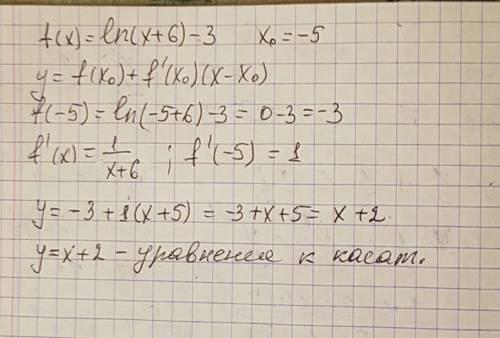 f(x) = ln(x+6) - 3    x₀ = -5
y = f(x₀) + f'(x₀)(x - x₀)
f(-5) = ln(-5+6) - 3 = 0 - 3 = -3
f'(x) = 1/(x+6) ; f'(-5) = 1
y = -3 + 1(x+5) = -3 + x + 5 = x + 2
y = x + 2 - уравнения к касат.